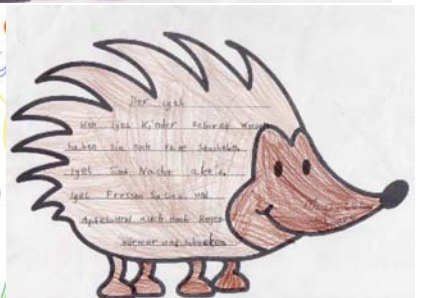 Der igel
Wen igel Kinder Geboren werden
haben sie noch keine Stacheln.
igel sind Nacht aktiv.
igel Fressen
Apfel und auch noch Regen
Würmer und Schnecken